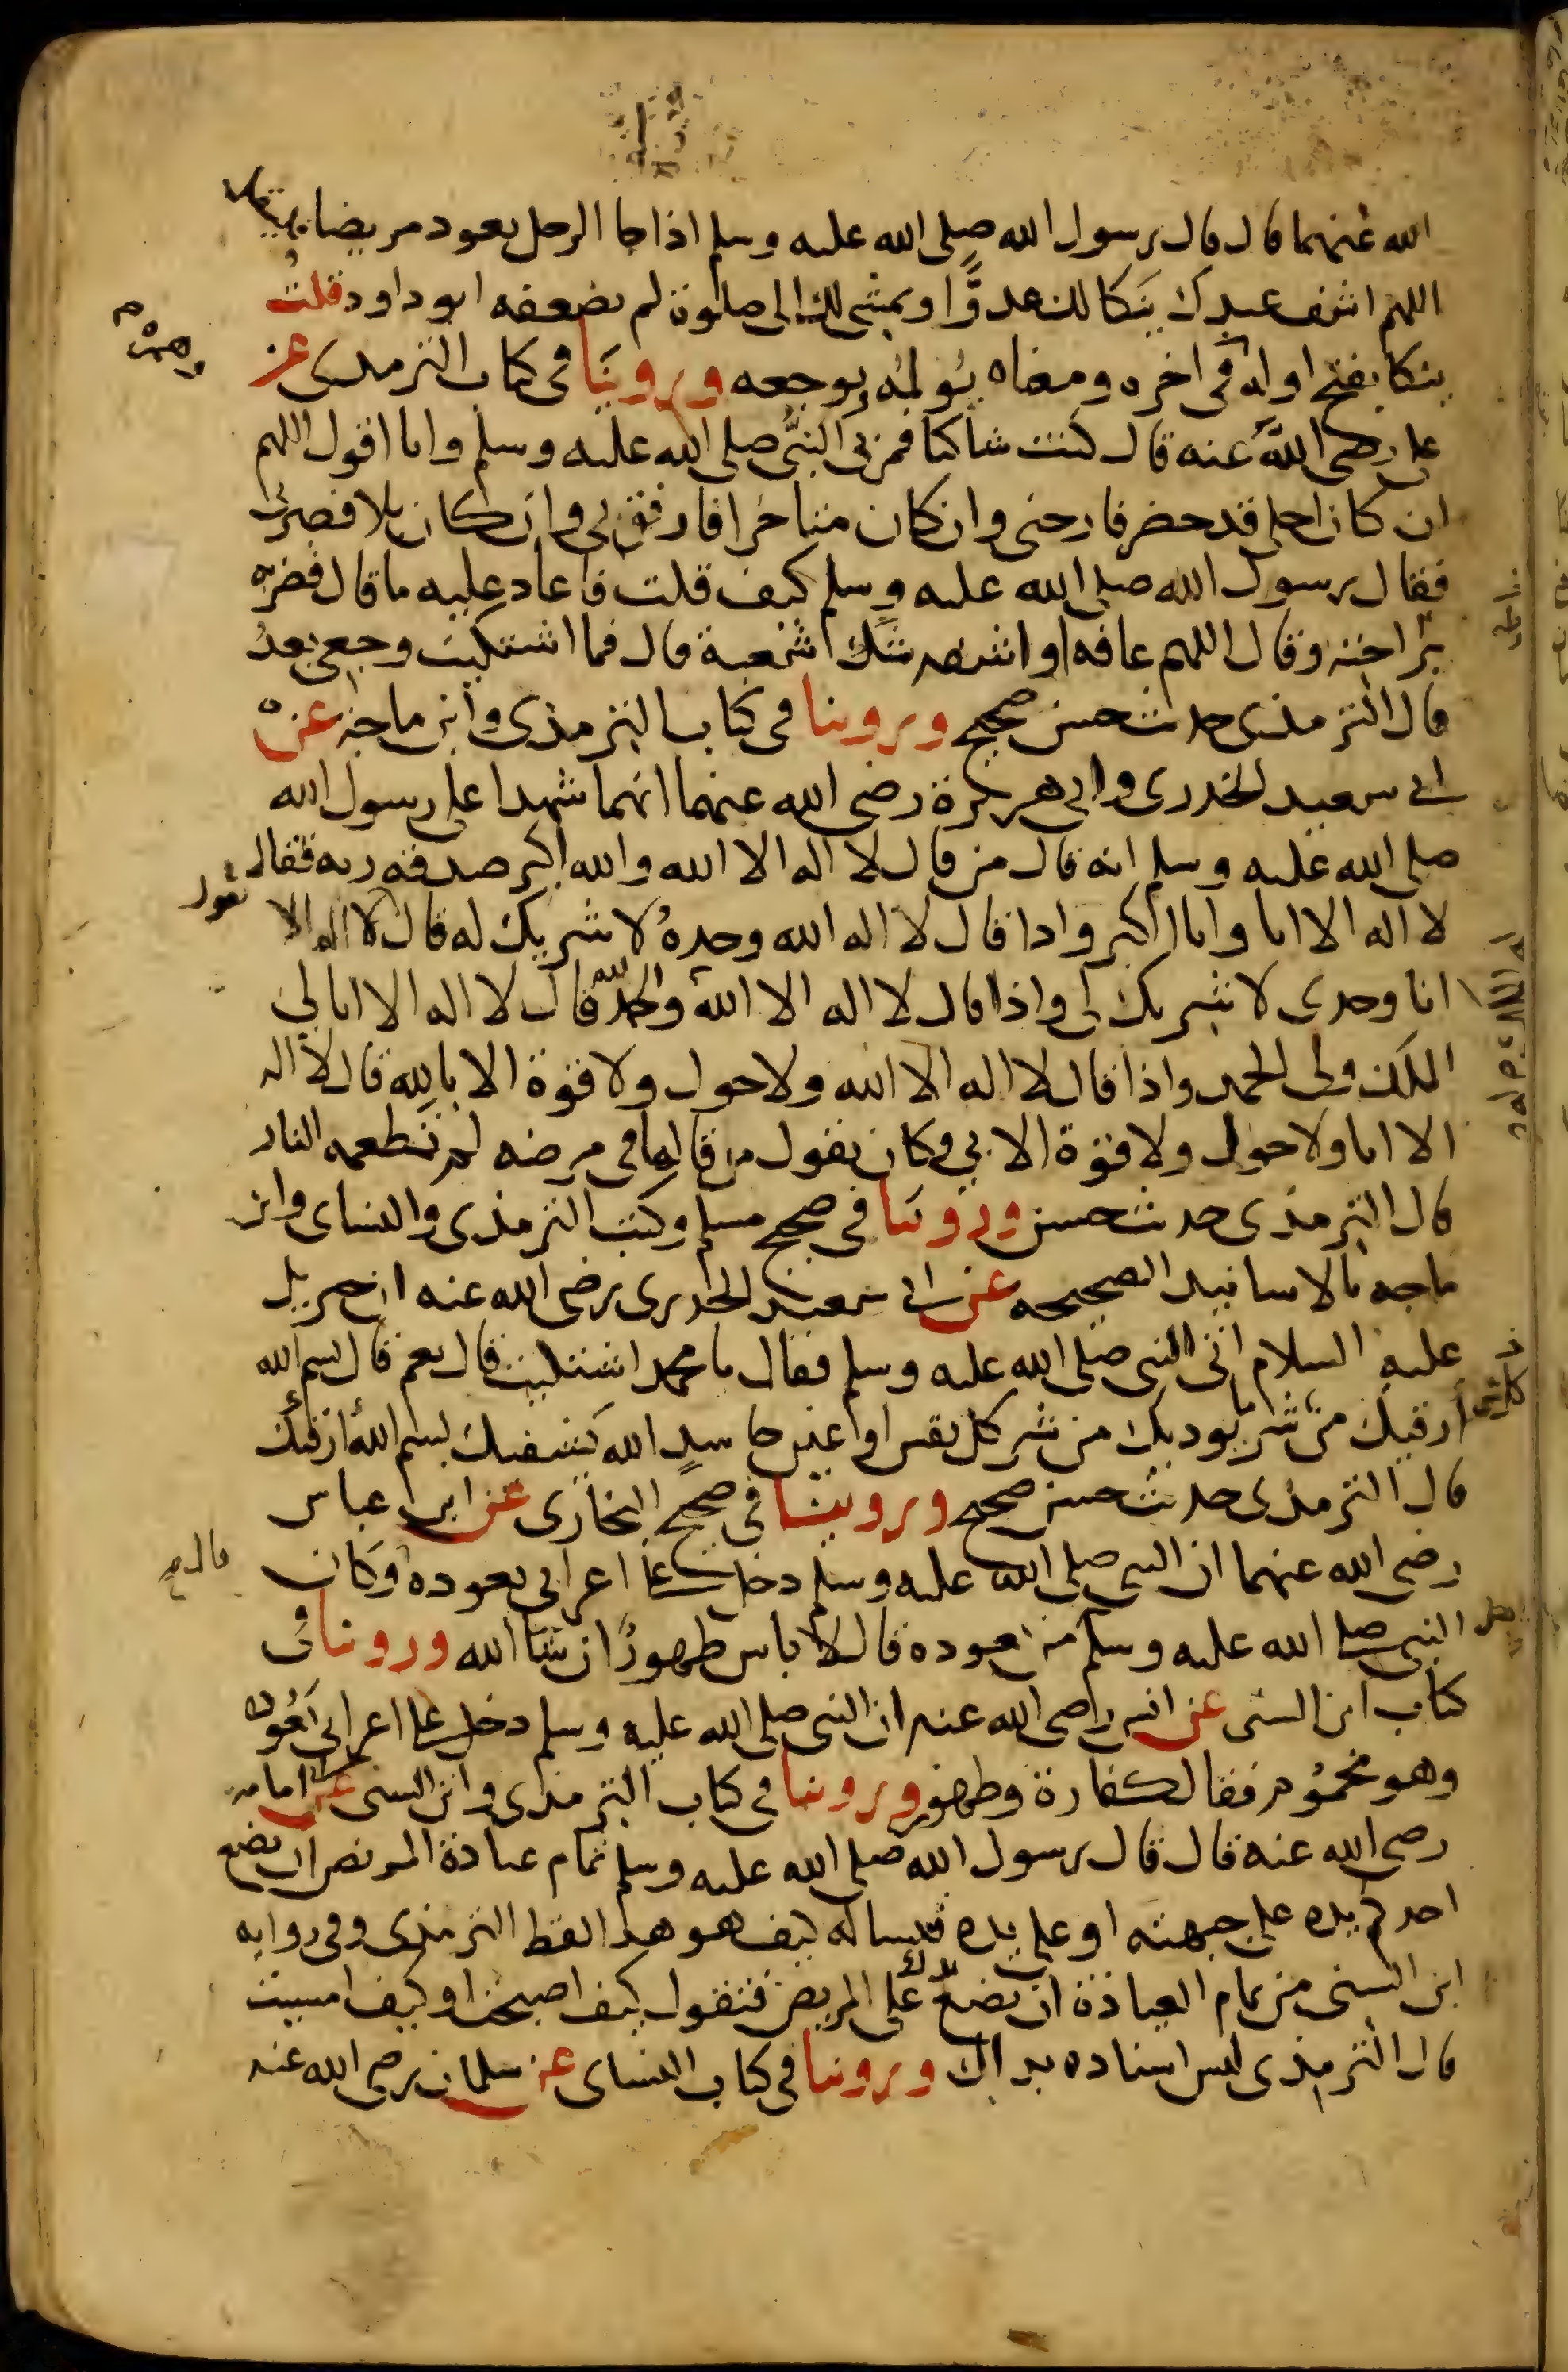 الله عنهما قال قال رسول الله صلى الله عليه وسلم اذا جا الرجل يعود مريضا فليقل
اللهم اشف عبدك ينكا لك عدوًّا او يمشي لك الى صلوة لم يضعفه ابو داود قلتُ
ينكا بفتح اوله في اخره ومعناه يُولمُه ويوجعه وروينَا في كتاب الترمذي عن
وهمزه
علي رضي اللهُ عنه قال كنت شاكيا فمر بي النبيُّ صلى الله عليه وسلم وانا اقول اللهم
ان كان اجلي قد حضر فارحني وان كان متاخرا فارفق بي وان كان بلا فصبرني
فقال رسول الله صلى الله عليه وسلم كيف قلت فاعاد عليه ما قال فضربه
برجله وقال اللهم عافه او اشفه شك شعبة قال فما اشتكيت وجعي بعدُ
قال الترمذي حديث حسن صحيح وروينا في كتاب الترمذي وابن ماجه عن
ابي سعيد الخدري وابي هريرة رضي الله عنهما انهما شهدا على رسول الله
صلى الله عليه وسلم انه قال من قال لا اله الا الله والله اكبر صدقه ربه فقال
لا اله الا انا وانا اكبر واذا قال لا اله الا الله وحدهُ لا شريك له قال لا اله الا
يقول
انا وحدي لا شريك لي واذا قال لا اله الا الله والحمد لله قال لا اله الا انا لي
الملك ولي الحمد واذا قال لا اله الا الله ولا حول ولا قوة الا بالله قال لا اله
الا انا ولا حول ولا قوة الا بي وكان يقول من قالها في مرضه لم تطعمه النار
قال الترمذي حديث حسن وروينا في صحيح مسلم وكتب الترمذي والنساي وابن
ماجه بالاسانيد الصحيحه عن ابي سعيد الخدري رضي الله عنه ان جبريل
عليه السلام اتى النبي صلى الله عليه وسلم فقال يا محمد اشتكيت قال نعم قال بسم الله
أرقيك من شر يوديك من شر كل نفس او عين حاسدٍ الله يشفيك بسم الله ارقيك
كل شي
قال الترمذي حديث حسن صحيح وروينا في صحيح البخاري عن ابن عباس
رضي الله عنهما ان النبي صلى الله عليه وسلم دخل على اعرابي يعوده وكان
قال
النبي صلى الله عليه وسلم من يعوده قال لا باس طهورٌ ان شا الله وروينا في
كتاب ابن السني عن انس رضي الله عنه ان النبي صلى الله عليه وسلم دخل على اعرابي يَعُودُه
وهو محمُوم فقال كفارة وطهور وروينا في كتاب الترمذي وابن السني عن ابي امامه
رضي الله عنه قال قال رسول الله صلى الله عليه وسلم تمام عيادة المريض ان يضع
احدكم يده على جبهته او على يده فيساله كيف هو هذا لفظ الترمذي وفي روايه
ابن السني من تمام العيادة ان تضع يدك على المريض فتقول كيف اصبحت او كيف امسيت
قال الترمذي ليس اسناده بذاك وروينا في كتاب النساي عن سلمان رضي الله عنه